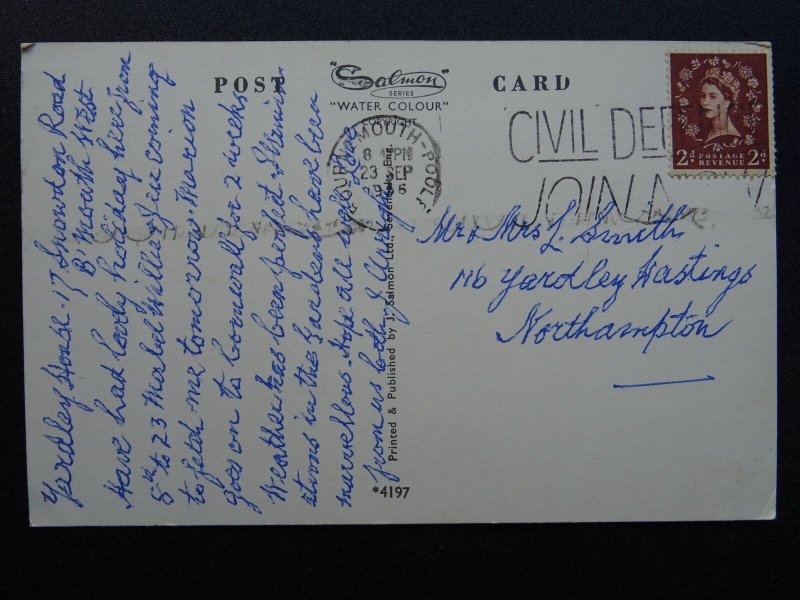 POST CARD
"Salmon"
SERIES
"WATER COLOUR"
COPYRIGHT
MOUTH-POOLE
PM
23 SEP
CIVIL DEF
JOIN N
2d POSTAGE 2d
REVENUE
Yardley House. 17 Snowdon Road
B. Mouth West
Have had lovely holiday here from
5th to 23 Mabel Willis & are coming
to fetch me tomorrow. Marion
goes on to Cornwall for 2 weeks
Weather has been perfect. Illumin
ations in the Gardens have been
marvellous. Hope all well. Love
from us both
Mr & Mrs L. Smith
116 Yardley Hastings
Northampton
Printed & Published by J. Salmon Ltd., Sevenoaks, Eng.
*4197